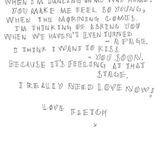 WHEN I'M DANCING ON MY WAY HOME.
YOU MAKE ME FEEL SO YOUNG,
WHEN THE MORNING COMES.
I'M THINKING OF ASKING YOU
WHEN WE HAVEN'T EVEN TURNED
A PAGE.
I THINK I WANT TO KISS
YOU SOON.
BECAUSE IT'S FEELING AT THAT
STAGE.
I REALLY NEED LOVE NOW!
LOVE FLETCH
X